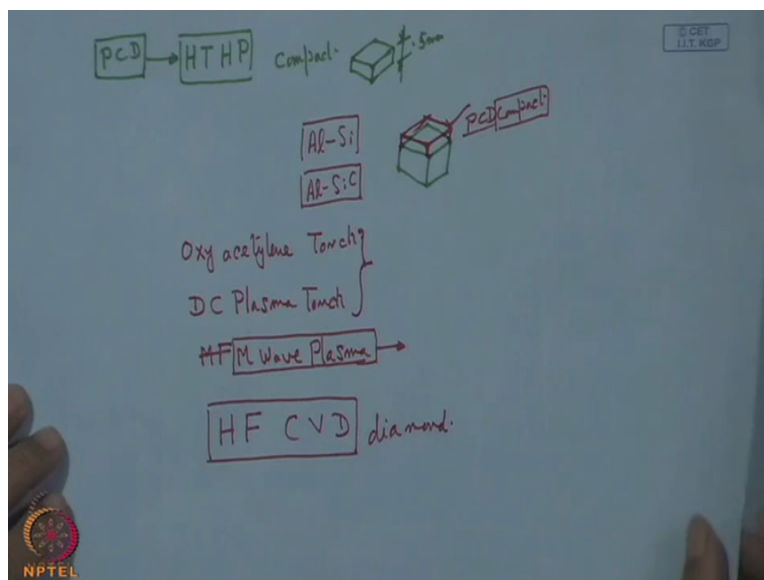 © CET
I.I.T. KGP
PCD → HTHP Compact. .5mm
PCD Compact.
Al-Si
Al-SiC
Oxy acetylene Torch
DC Plasma Torch
HF M Wave Plasma
HF CVD diamond.
NPTEL